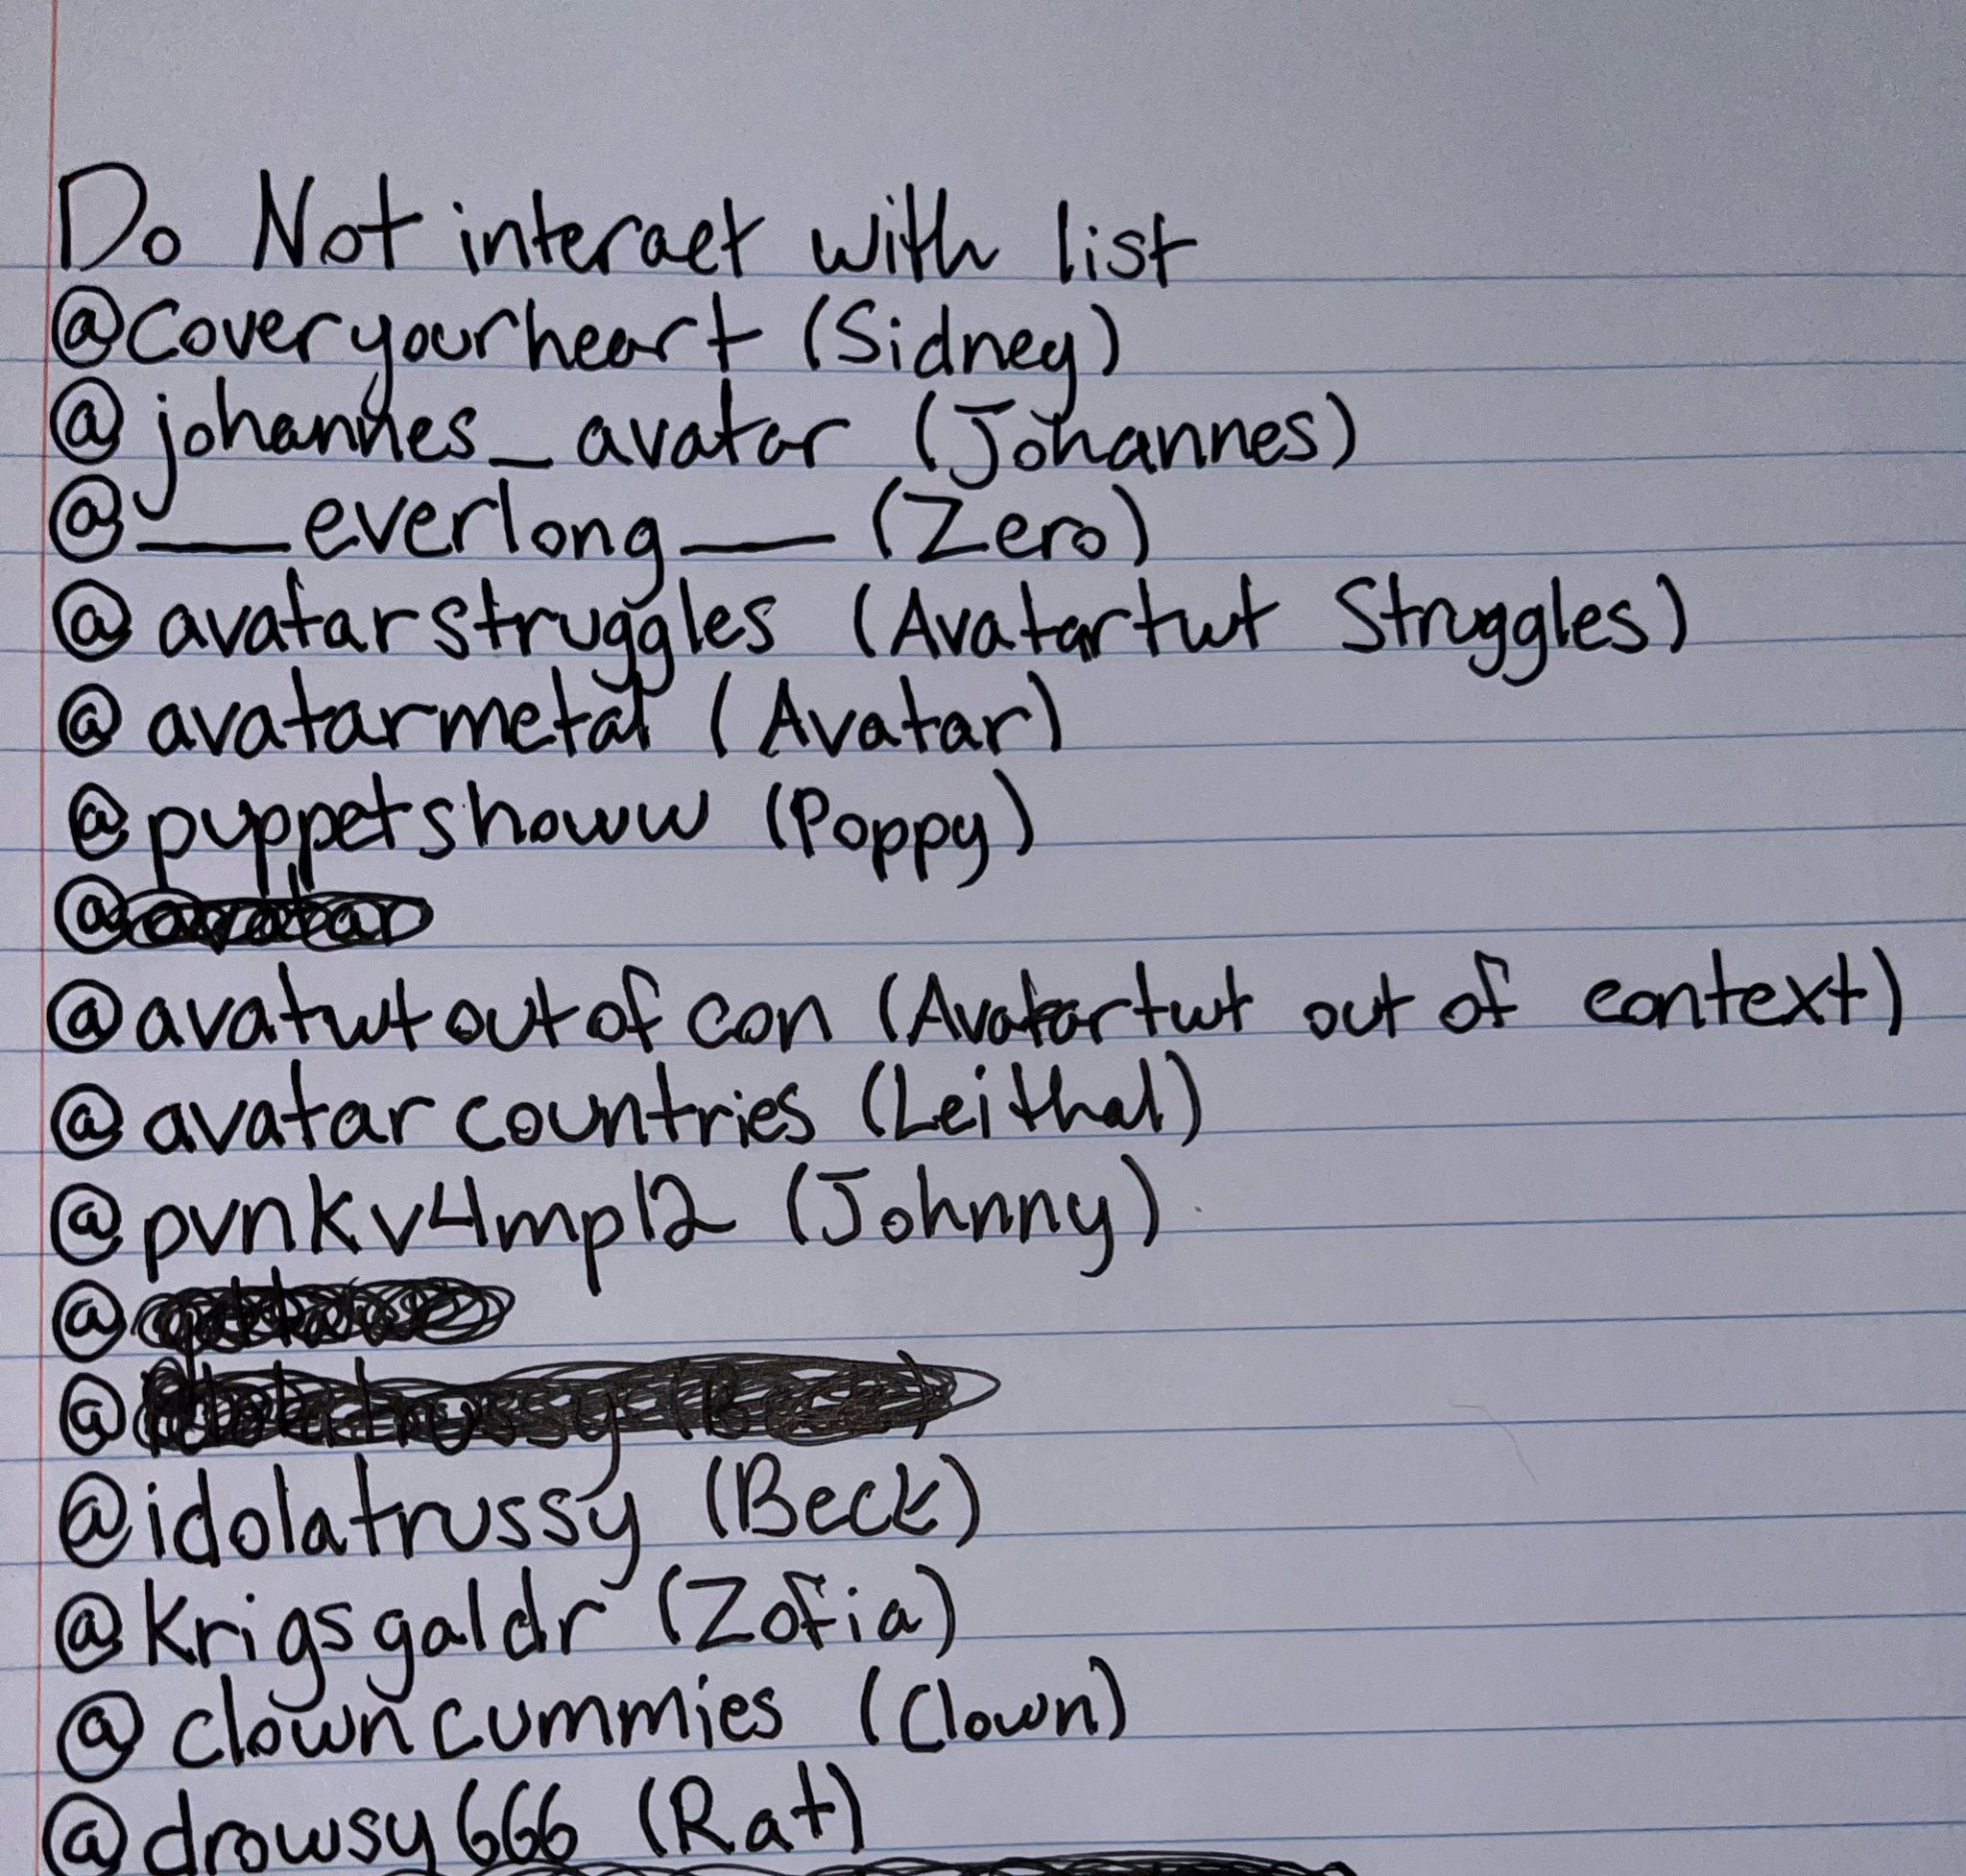 Do Not interact with list
@Coveryourheart (Sidney)
@johannes_avatar (Johannes)
@__everlong__ (Zero)
@avatarstruggles (Avatartwt Struggles)
@avatarmetal (Avatar)
@puppetshoww (Poppy)
@
@avatwtoutofcon (Avatartwt out of context)
@avatarcountries (Leithal)
@pvnkv4mp12 (Johnny)
@
@
@idolatrussy (Beck)
@krigsgaldr (Zofia)
@clowncummies (Clown)
@drowsy666 (Rat)